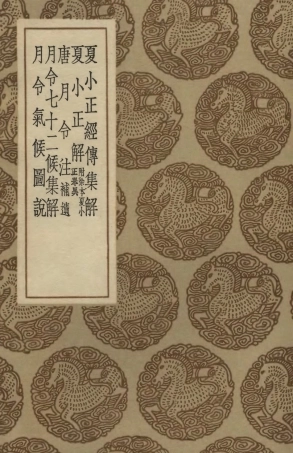 夏小正經傳集解
夏小正解 附徐本夏小正舉異
唐月令注補遺
月令七十二候集解
月令氣候圖說